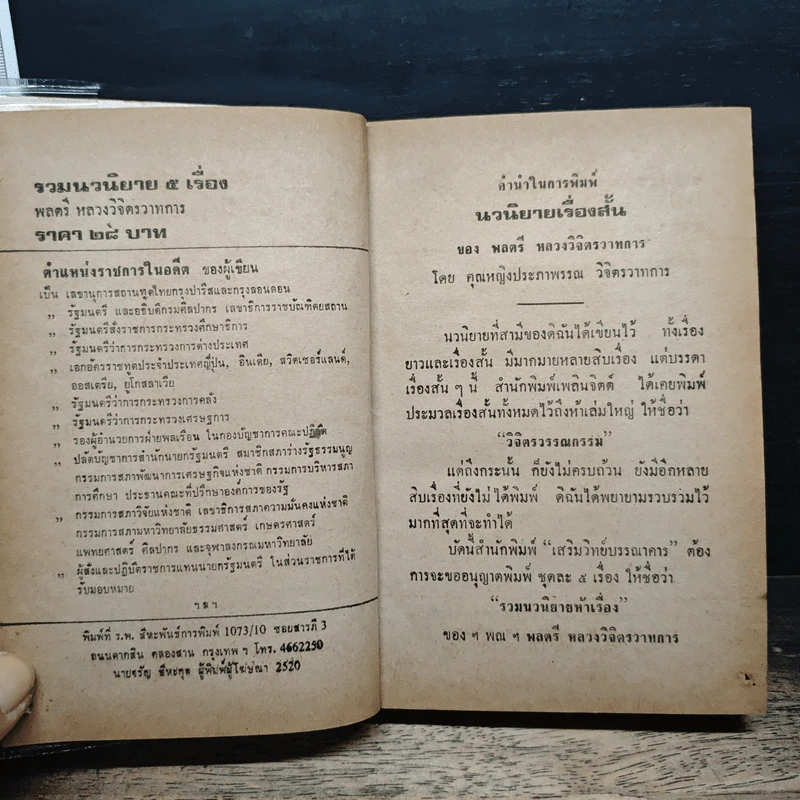 รวมนวนิยาย ๕ เรื่อง
พลตรี หลวงวิจิตรวาทการ
ราคา ๒๘ บาท
ตำแหน่งราชการในอดีต ของผู้เขียน
เป็น เลขานุการสถานทูตไทยกรุงปารีสและกรุงลอนดอน
„ รัฐมนตรี และอธิบดีกรมศิลปากร เลขาธิการราชบัณฑิตยสถาน
„ รัฐมนตรีสั่งราชการกระทรวงศึกษาธิการ
„ รัฐมนตรีว่าการกระทรวงการต่างประเทศ
„ เอกอัครราชทูตประจำประเทศญี่ปุ่น, อินเดีย, สวิตเซอร์แลนด์,
ออสเตรีย, ยูโกสลาเวีย
„ รัฐมนตรีว่าการกระทรวงการคลัง
„ รัฐมนตรีว่าการกระทรวงเศรษฐการ
„ รองผู้อำนวยการฝ่ายพลเรือน ในกองบัญชาการคณะปฏิวัติ
„ ปลัดบัญชาการสำนักนายกรัฐมนตรี สมาชิกสภาร่างรัฐธรรมนูญ
กรรมการสภาพัฒนาการเศรษฐกิจแห่งชาติ กรรมการบริหารสภา
การศึกษา ประธานคณะที่ปรึกษาองค์การของรัฐ
„ กรรมการสภาวิจัยแห่งชาติ เลขาธิการสภาความมั่นคงแห่งชาติ
กรรมการสภามหาวิทยาลัยธรรมศาสตร์ เกษตรศาสตร์
แพทยศาสตร์ ศิลปากร และจุฬาลงกรณมหาวิทยาลัย
„ ผู้สั่งและปฏิบัติราชการแทนนายกรัฐมนตรี ในส่วนราชการที่ได้
รับมอบหมาย
ฯลฯ
พิมพ์ที่ ร.พ. สีหะพันธ์การพิมพ์ 1073/10 ซอยสารภี 3
ถนนตากสิน คลองสาน กรุงเทพ ฯ โทร. 4662250
นายจรัญ สีหะกุล ผู้พิมพ์ผู้โฆษณา 2520
คำนำในการพิมพ์
นวนิยายเรื่องสั้น
ของ พลตรี หลวงวิจิตรวาทการ
โดย คุณหญิงประภาพรรณ วิจิตรวาทการ
นวนิยายที่สามีของดิฉันได้เขียนไว้ ทั้งเรื่อง
ยาวและเรื่องสั้น มีมากมายหลายสิบเรื่อง แต่บรรดา
เรื่องสั้น ๆ นี้ สำนักพิมพ์เพลินจิตต์ ได้เคยพิมพ์
ประมวลเรื่องสั้นทั้งหมดไว้ถึงห้าเล่มใหญ่ ให้ชื่อว่า
“วิจิตรวรรณกรรม”
แต่ถึงกระนั้น ก็ยังไม่ครบถ้วน ยังมีอีกหลาย
สิบเรื่องที่ยังไม่ได้พิมพ์ ดิฉันได้พยายามรวบรวมไว้
มากที่สุดที่จะทำได้
บัดนี้สำนักพิมพ์ “เสริมวิทย์บรรณาคาร” ต้อง
การจะขออนุญาตพิมพ์ ชุดละ ๕ เรื่อง ให้ชื่อว่า
“รวมนวนิยายห้าเรื่อง”
ของ ฯ พณ ฯ พลตรี หลวงวิจิตรวาทการ